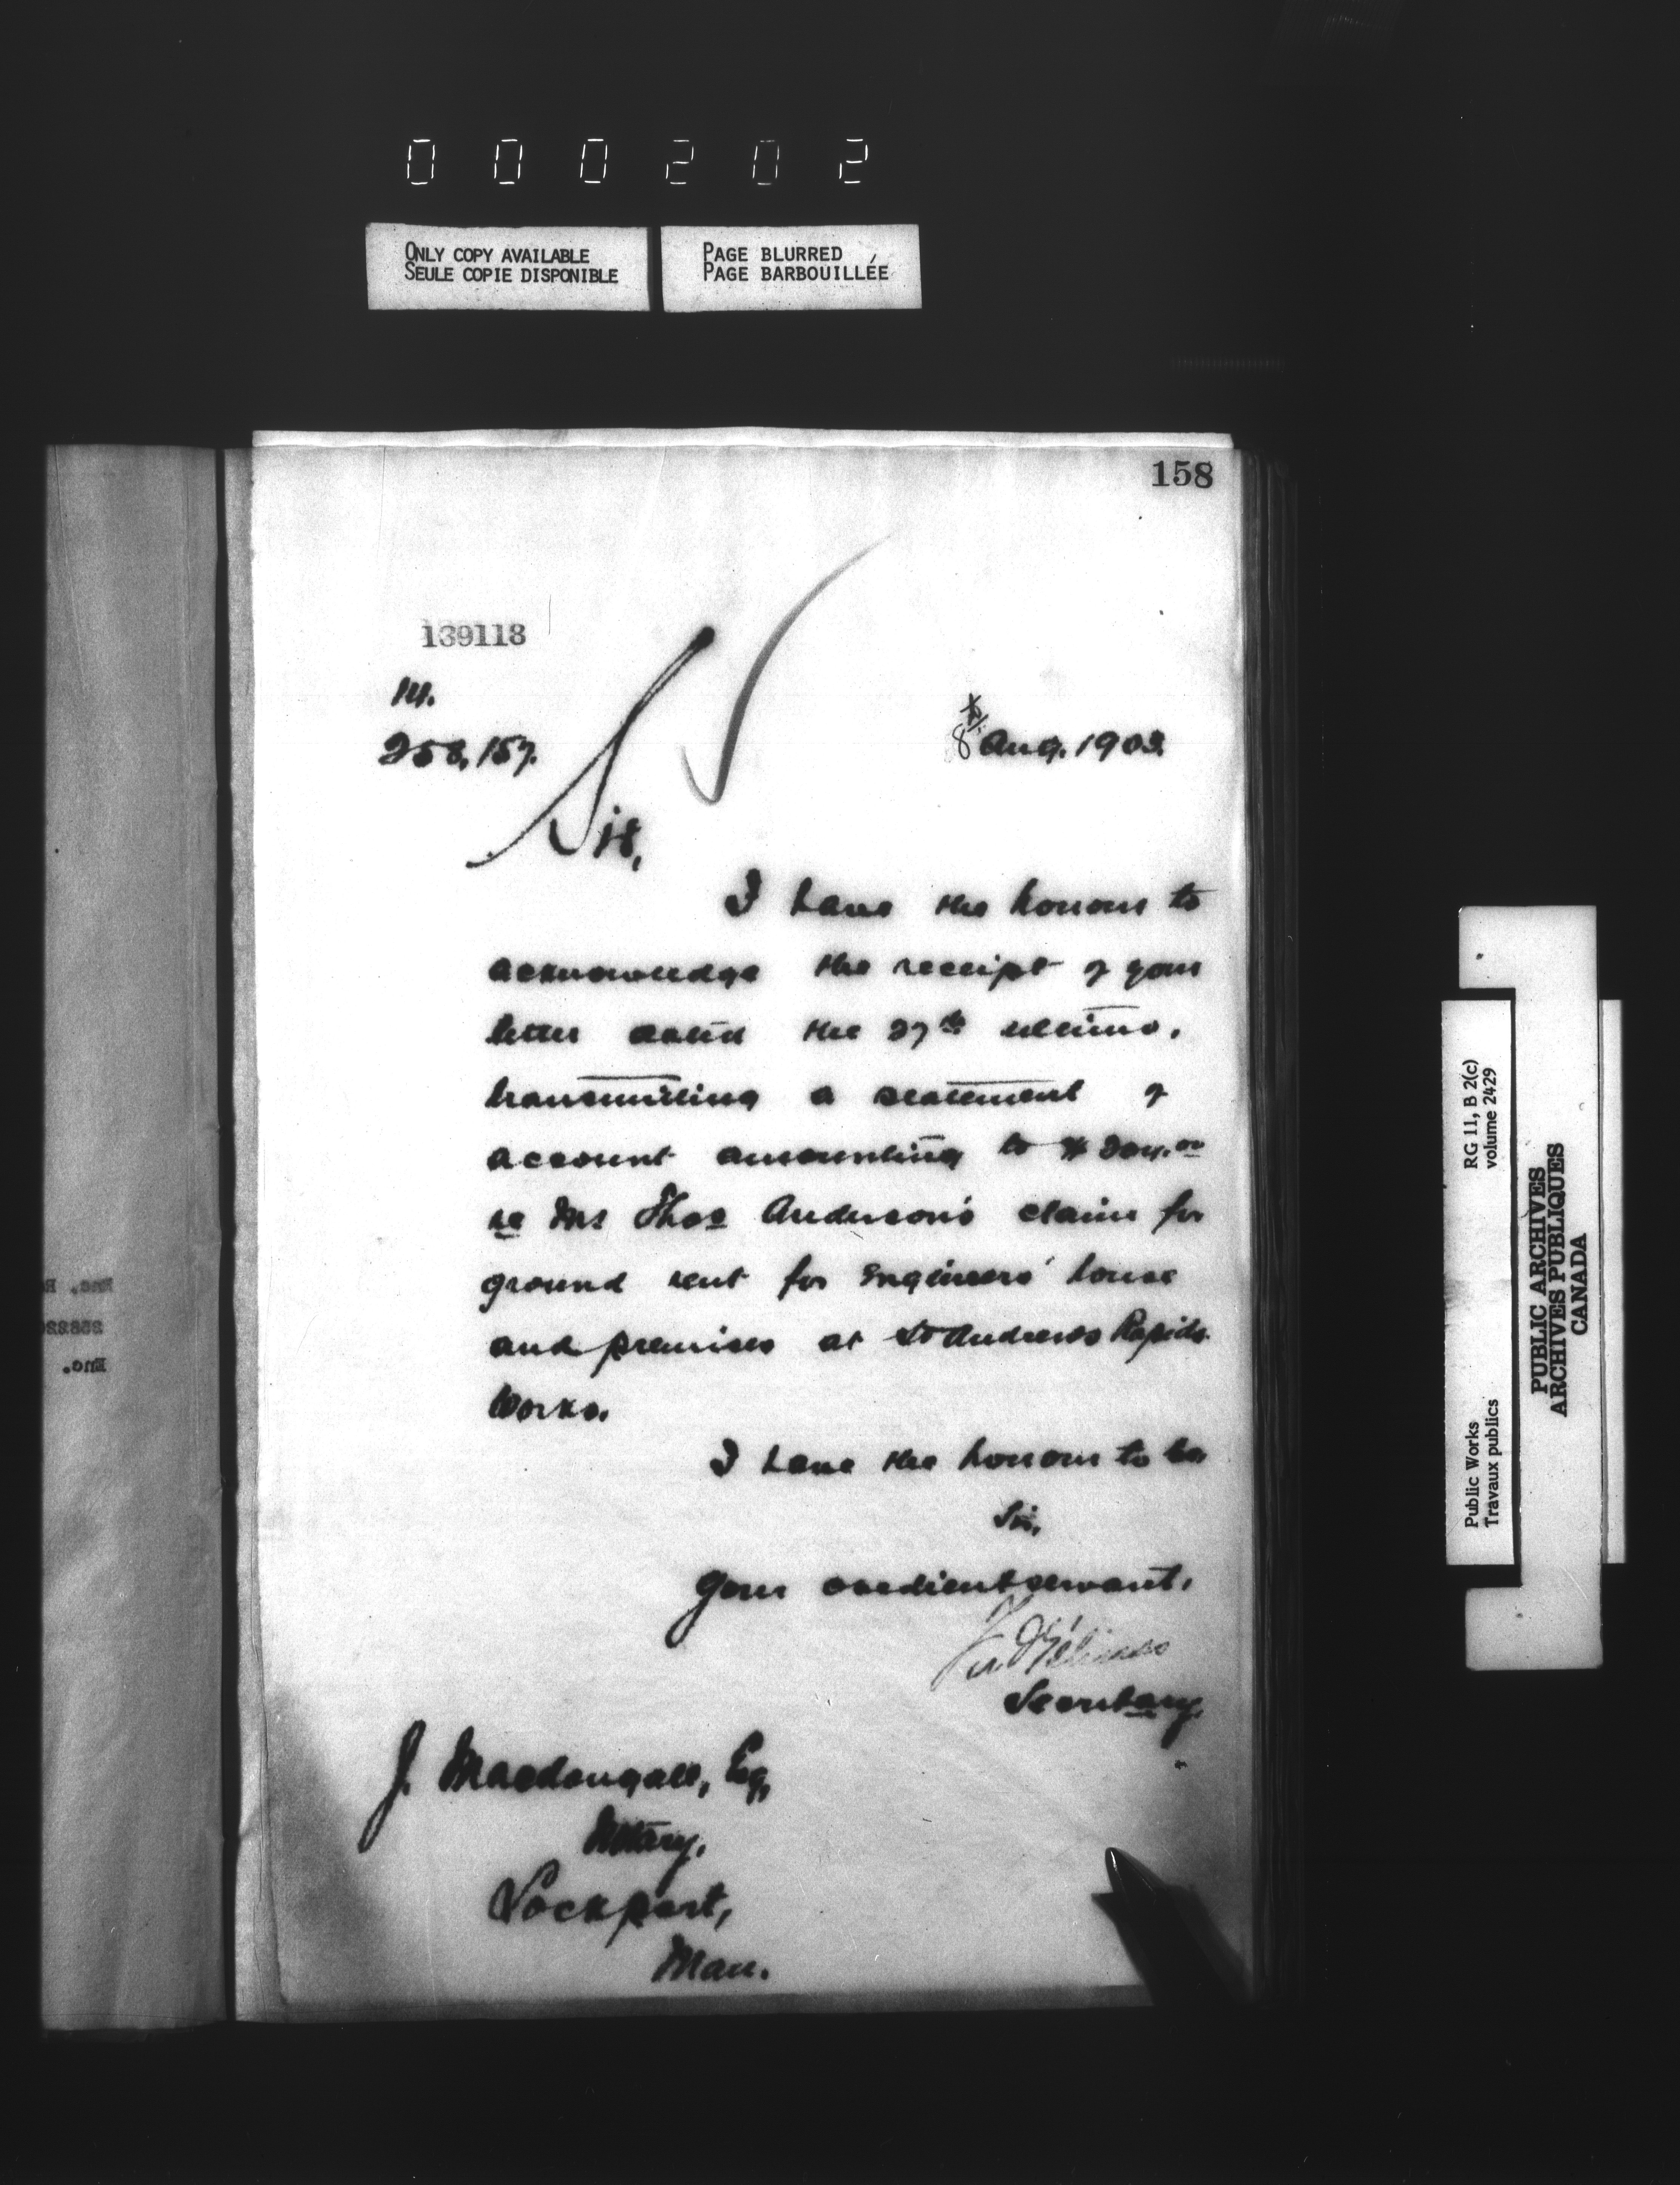 000202
ONLY COPY AVAILABLE
SEULE COPIE DISPONIBLE
PAGE BLURRED
PAGE BARBOUILLÉE
158
139118
M.
258,157.
8th Aug. 1903.
Sir,
I have the honour to
acknowledge the receipt of your
letter dated the 27th ultimo,
transmitting a statement of
account amounting to $204.00
re Mrs Thos Anderson's claim for
ground rent for Engineers' house
and premises at St Andrews Rapids
Works.
I have the honour to be
Sir,
Your obedient servant,
Fred Gélinas
Secretary.
J. Macdougall, Esq,
Notary,
Lockport,
Man.
Enc.
Enc.
RG 11, B 2(c)
volume 2429
Public Works
Travaux publics
PUBLIC ARCHIVES
ARCHIVES PUBLIQUES
CANADA